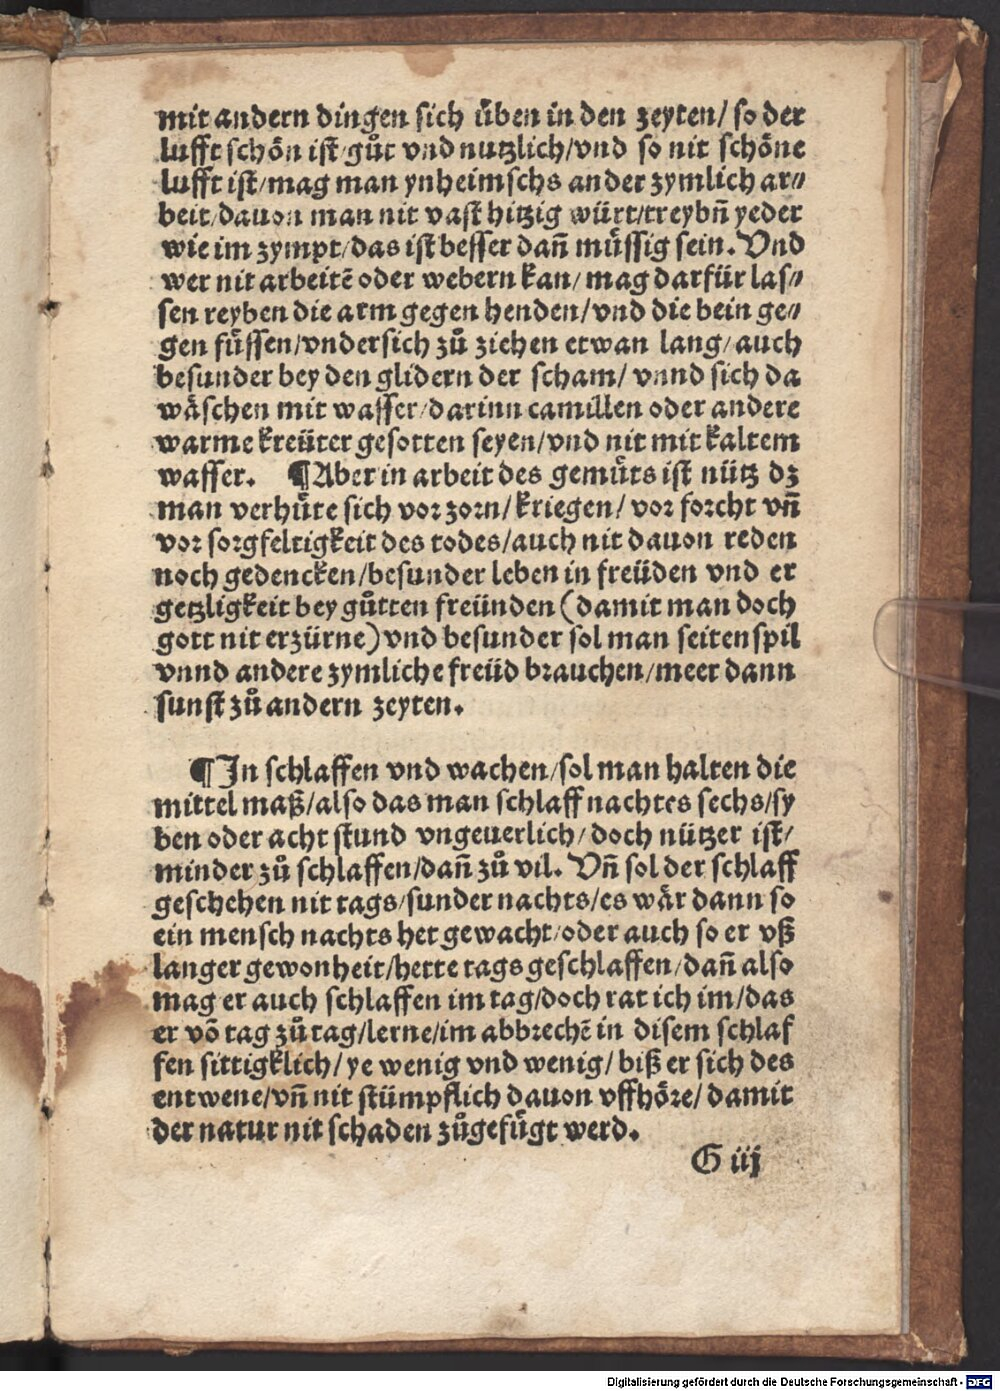 mit andern dingen sich üben in den zeyten/ so der
lufft schön ist/gůt vnd nutzlich/vnd so nit schöne
lufft ist/mag man ynheimschs an der zymlich ar⸗
beit/dauon man nit vast hitzig würt/treybn̄ yeder
wie im zympt/das ist besser dañ müssig sein. Vnd
wer nit arbeitē oder webern kan/ mag darfür las⸗
sen reyben die arm gegen henden/vnd die bein ge⸗
gen füssen/vndersich zů ziehen etwan lang/auch
besunder bey den glidern der scham/ vnnd sich da
wäschen mit wasser/darinn camillen oder andere
warme kreüter gesotten seyen/vnd nit mit kaltem
wasser. ¶Aber in arbeit des gemüts ist nütz dz
man verhüte sich vor zorn/kriegen/ vor forcht vñ
vor sorgfeltigkeit des todes/auch nit dauon reden
noch gedencken/besunder leben in freüden vnd er
getzligkeit bey gůtten freünden (damit man doch
gott nit erzürne) vnd besunder sol man seitenspil
vnnd andere zymliche freüd brauchen/meer dann
sunst zů andern zeyten.
¶In schlaffen vnd wachen/sol man halten die
mittel maß/also das man schlaff nachtes sechs/sy
ben oder acht stund vngeuerlich/doch nützer ist/
minder zů schlaffen/dañ zů vil. Vñ sol der schlaff
geschehen nit tags/sunder nachts/es wär dann so
ein mensch nachts het gewacht/oder auch so er vß
langer gewonheit/hette tags geschlaffen/dañ also
mag er auch schlaffen im tag/doch rat ich im/das
er võ tag zů tag/lerne/im abbrechē in disem schlaf
fen sittigklich/ye wenig vnd wenig/ biß er sich des
entwene/vñ nit stümpflich dauon vffhöre/damit
der natur nit schaden zůgefügt werd.
G iij
Digitalisierung gefördert durch die Deutsche Forschungsgemeinschaft - DFG